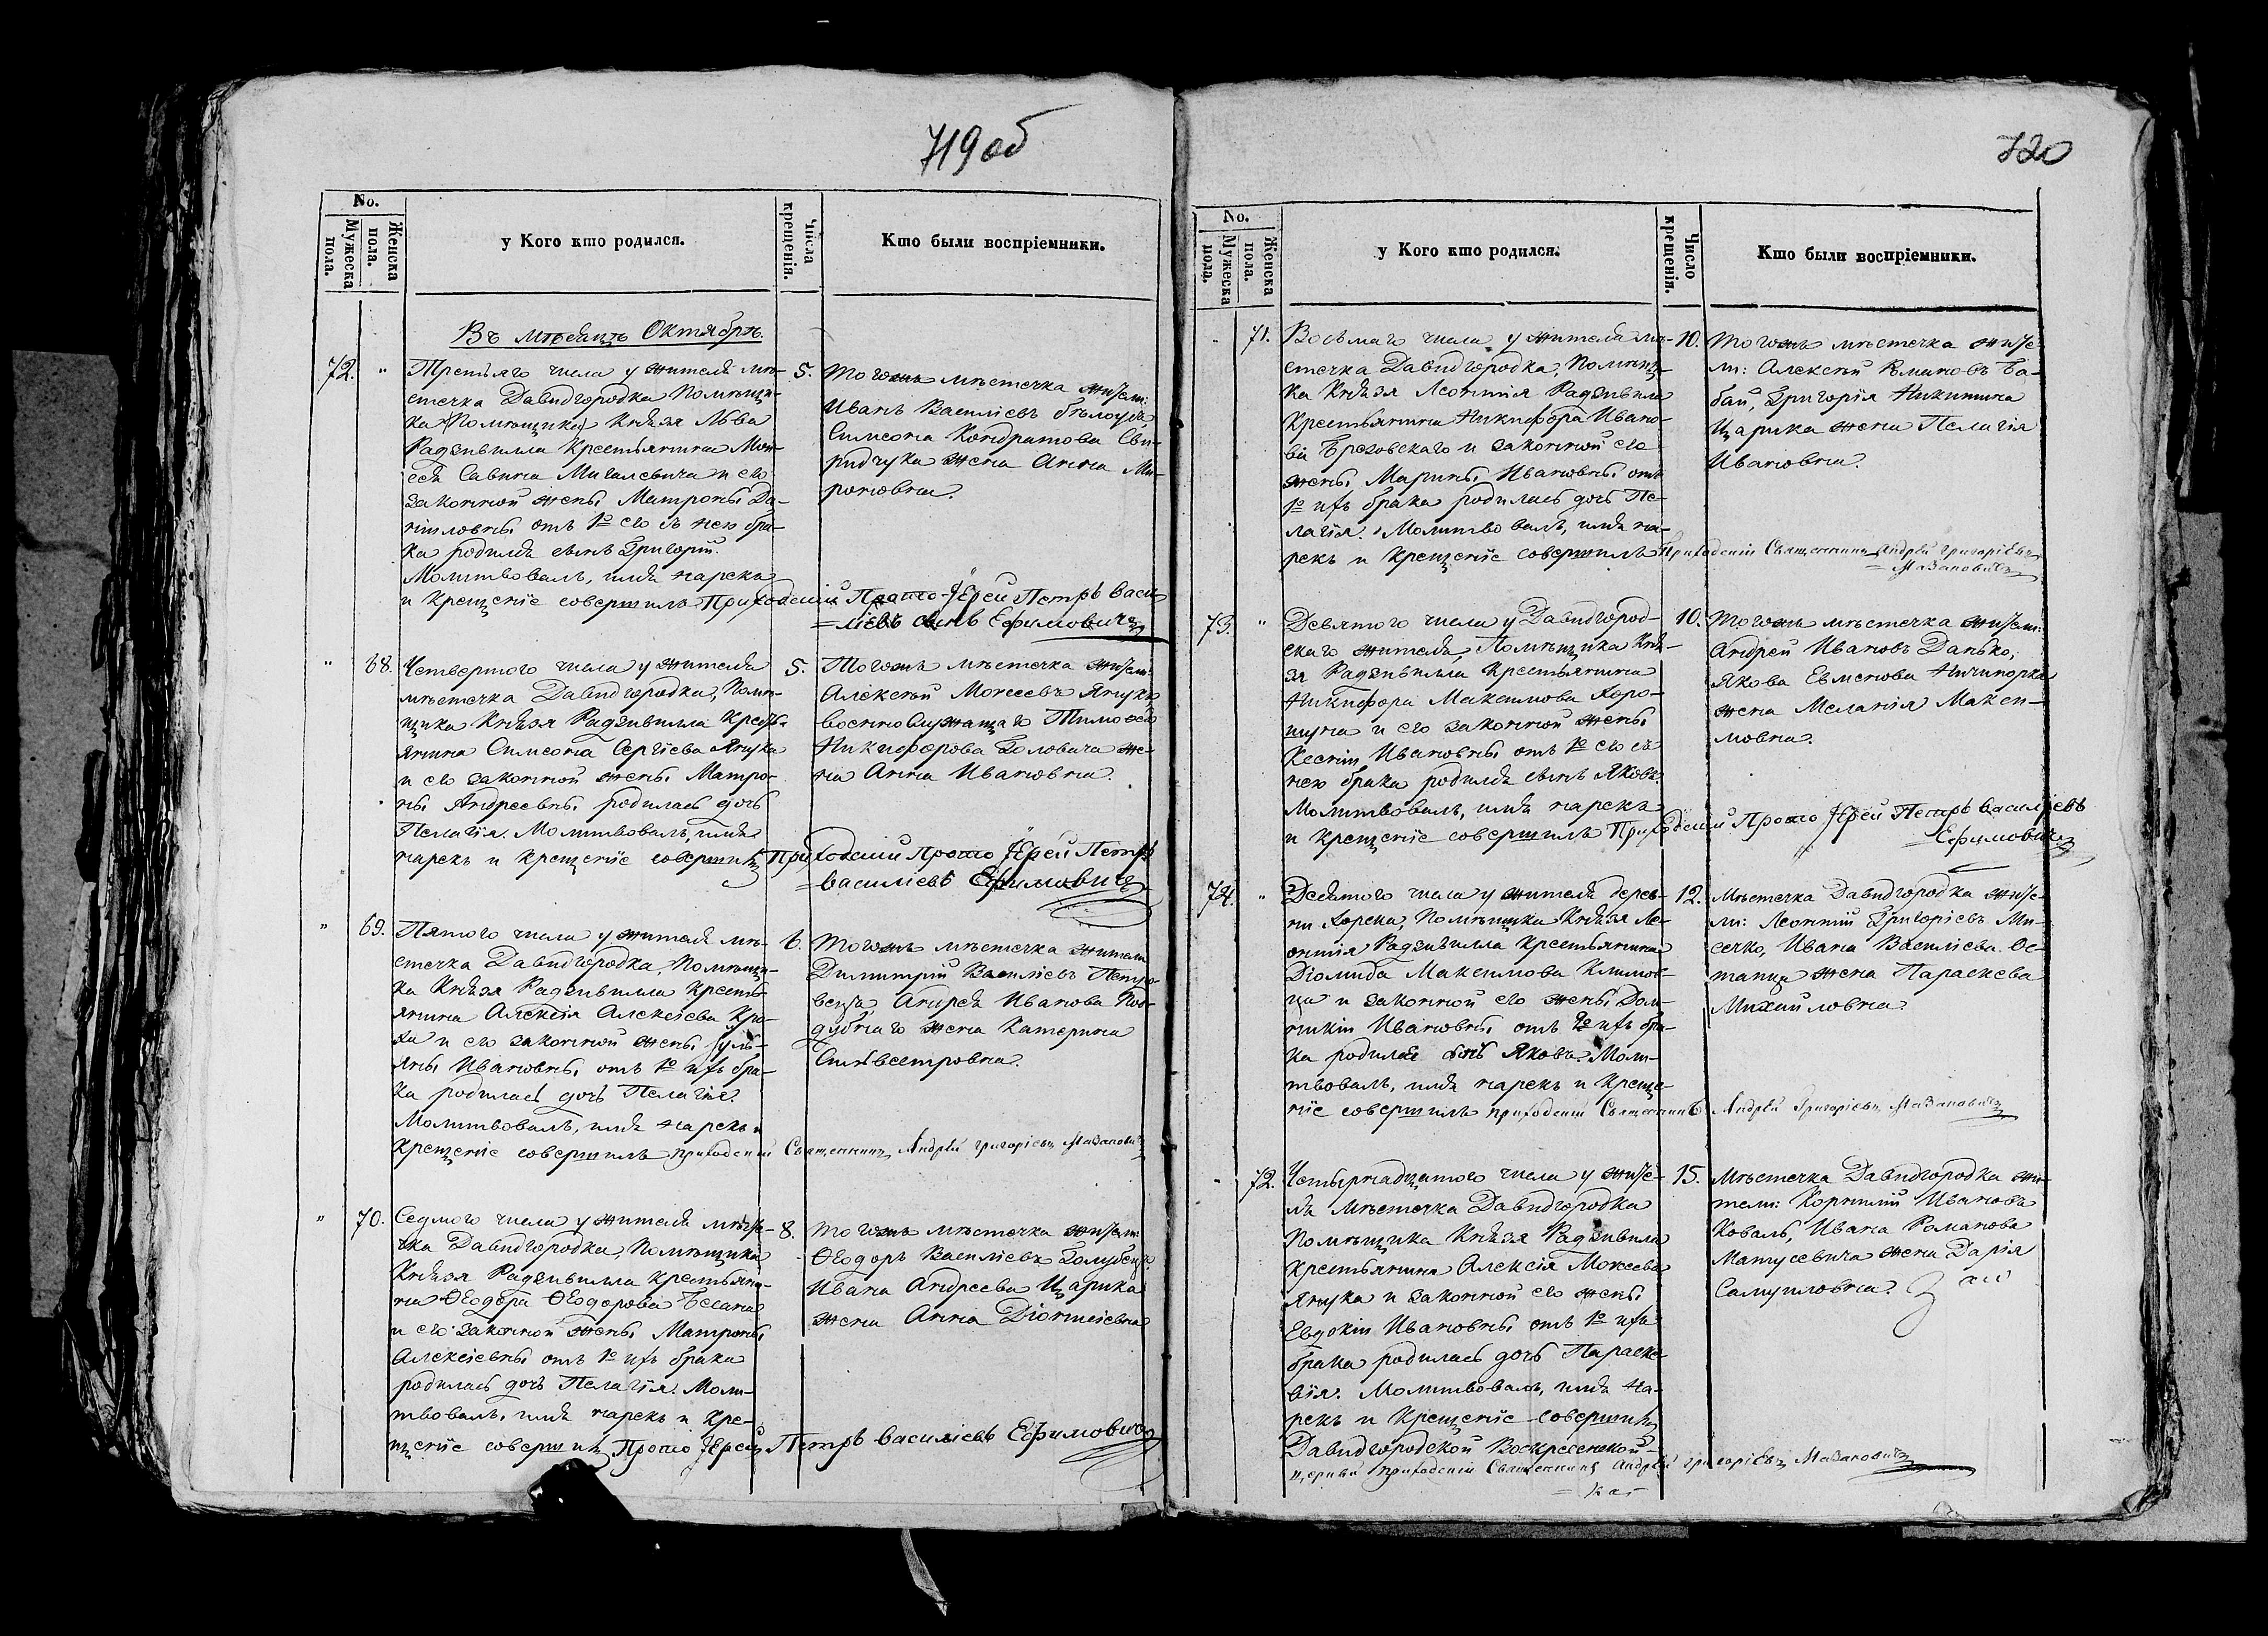 719 об
No.
Мужеска пола.
Женска пола.
у Кого кто родился.
Числа крещенія.
Кто были воспріемники.
Въ мѣсяцѣ Октябрѣ.
72. "
Третьяго числа у жителя мѣ-
стечка Давидгородка Помѣщи-
ка (Помѣщика) Князя Льва
Радзивилла Крестьянина Мои-
сея Савина Михалевича и его
законной жены Матроны Да-
ниловны отъ 1го его съ нею бра-
ка родился сынъ Григорій.
Молитвовалъ, имя нарекъ
и крещеніе совершилъ Приходскій Прото-Іерей Петръ Васи
=лієвъ сынъ Ефимовичъ
5.
Тогожъ мѣстечка жители:
Иванъ Василіевъ Бѣлоусъ,
Симеона Кондратова Сви-
ридчука жена Анна Ми-
роновна.
" 68.
Четвертого числа у жителя
мѣстечка Давидгородка, Помѣ-
щика Князя Радзивилла Кресть-
янина Симеона Сергіева Янука
и его законной жены Матро-
ны Андреевны родилась дочь
Пелагія. Молитвовалъ, имя
нарекъ и крещеніе совершилъ Приходскій Прото Іерей Петръ
=Василіевъ Ефимовичъ
5.
Тогожъ мѣстечка жители:
Алексѣй Моисеевъ Янукъ
военнослужащаго Тимофея
Никифорова Головача же-
на Анна Ивановна.
" 69.
Пятого числа у жителя мѣ-
стечка Давидгородка, Помѣщи-
ка Князя Радзивилла Кресть-
янина Алексія Алексіева Кро-
ха и его законной жены Іуль-
яны Ивановны отъ 1го ихъ бра-
ка родилась дочь Пелагія.
Молитвовалъ, имя нарекъ и
крещеніе совершилъ приходскій Священникъ Андрей Григоріевъ Мазановичъ
6.
Тогожъ мѣстечка жители
Димитрій Василіевъ Петро-
вецъ, Андрея Иванова Под-
дубнаго жена Катерина
Сильвестровна.
" 70.
Седмого числа у жителя мѣсте-
чка Давидгородка, Помѣщика
Князя Радзивилла Крестьяни-
на Ѳеодора Ѳеодорова Бесана
и его законной жены Матроны
Алексіевны отъ 1го ихъ брака
родилась дочь Пелагія. Моли-
твовалъ, имя нарекъ и кре-
щеніе совершилъ Прото Іерей Петръ Василіевъ Ефимовичъ
8.
Тогожъ мѣстечка жители:
Ѳеодоръ Василіевъ Голубецъ,
Ивана Андреева Царика
жена Анна Діонисіевна
720
No.
Мужеска пола.
Женска пола.
у Кого кто родился.
Число крещенія.
Кто были воспріемники.
" 71.
Восьмаго числа у жителя мѣ-
стечка Давидгородка, Помѣщи-
ка Князя Леонтія Радзивила
Крестьянина Никифора Ивано-
ва Бреговскаго и законной его
жены Марины Ивановны отъ
1го ихъ брака родилась дочь Пе-
лагія. Молитвовалъ, имя на-
рекъ и крещеніе совершилъ Приходскій Священникъ Андрей Григоріевъ
= Мазановичъ
10.
Тогожъ мѣстечка жите-
ли: Алексѣй Романовъ Ба-
бай, Григорія Никитина
Царика жена Пелагія
Ивановна.
73. "
Девятого числа у Давидгород-
скаго жителя, Помѣщика Кня-
зя Радзивилла Крестьянина
Никифора Максимова Хоро-
шуна и его законной жены
Ксеніи Ивановны отъ 1го его съ
нею брака родился сынъ Яковъ.
Молитвовалъ, имя нарекъ
и крещеніе совершилъ Приходскій Прото Іерей Петръ Василіевъ
=Ефимовичъ
10.
Тогожъ мѣстечка жители:
Андрей Ивановъ Данько,
Якова Евменова Ничипорка
жена Меланія Макси-
мовна.
74. "
Десятого числа у жителя дерев-
ни Хорска, Помѣщика Князя Ле-
онтія Радзивилла Крестьянина
Діомида Максимова Климов-
ца и законной его жены Дом-
никіи Ивановны отъ 2го ихъ бра-
ка родился сынъ Яковъ. Моли-
твовалъ, имя нарекъ и креще-
ніе совершилъ приходскій Священникъ Андрей Григоріевъ Мазановичъ
12.
Мѣстечка Давидгородка жите-
ли: Леонтій Григоріевъ Ми-
сечко, Ивана Василіева Ос-
тапца жена Параскева
Михайловна.
" 72.
Четырнадцатого числа у жите-
ля Мѣстечка Давидгородка
Помѣщика Князя Радзивила
Крестьянина Алексія Моисеева
Янука и законной его жены
Евдокіи Ивановны отъ 1го ихъ
брака родилась дочь Параске-
вія. Молитвовалъ, имя на-
рекъ и крещеніе совершилъ
Давидгородской Воскресенской
церкви приходскій Священникъ Андрей Григоріевъ Мазановичъ
15.
Мѣстечка Давидгородка жи-
тели: Корнилій Ивановъ
Коваль, Ивана Романова
Матусевича жена Дарія
Самуиловна.